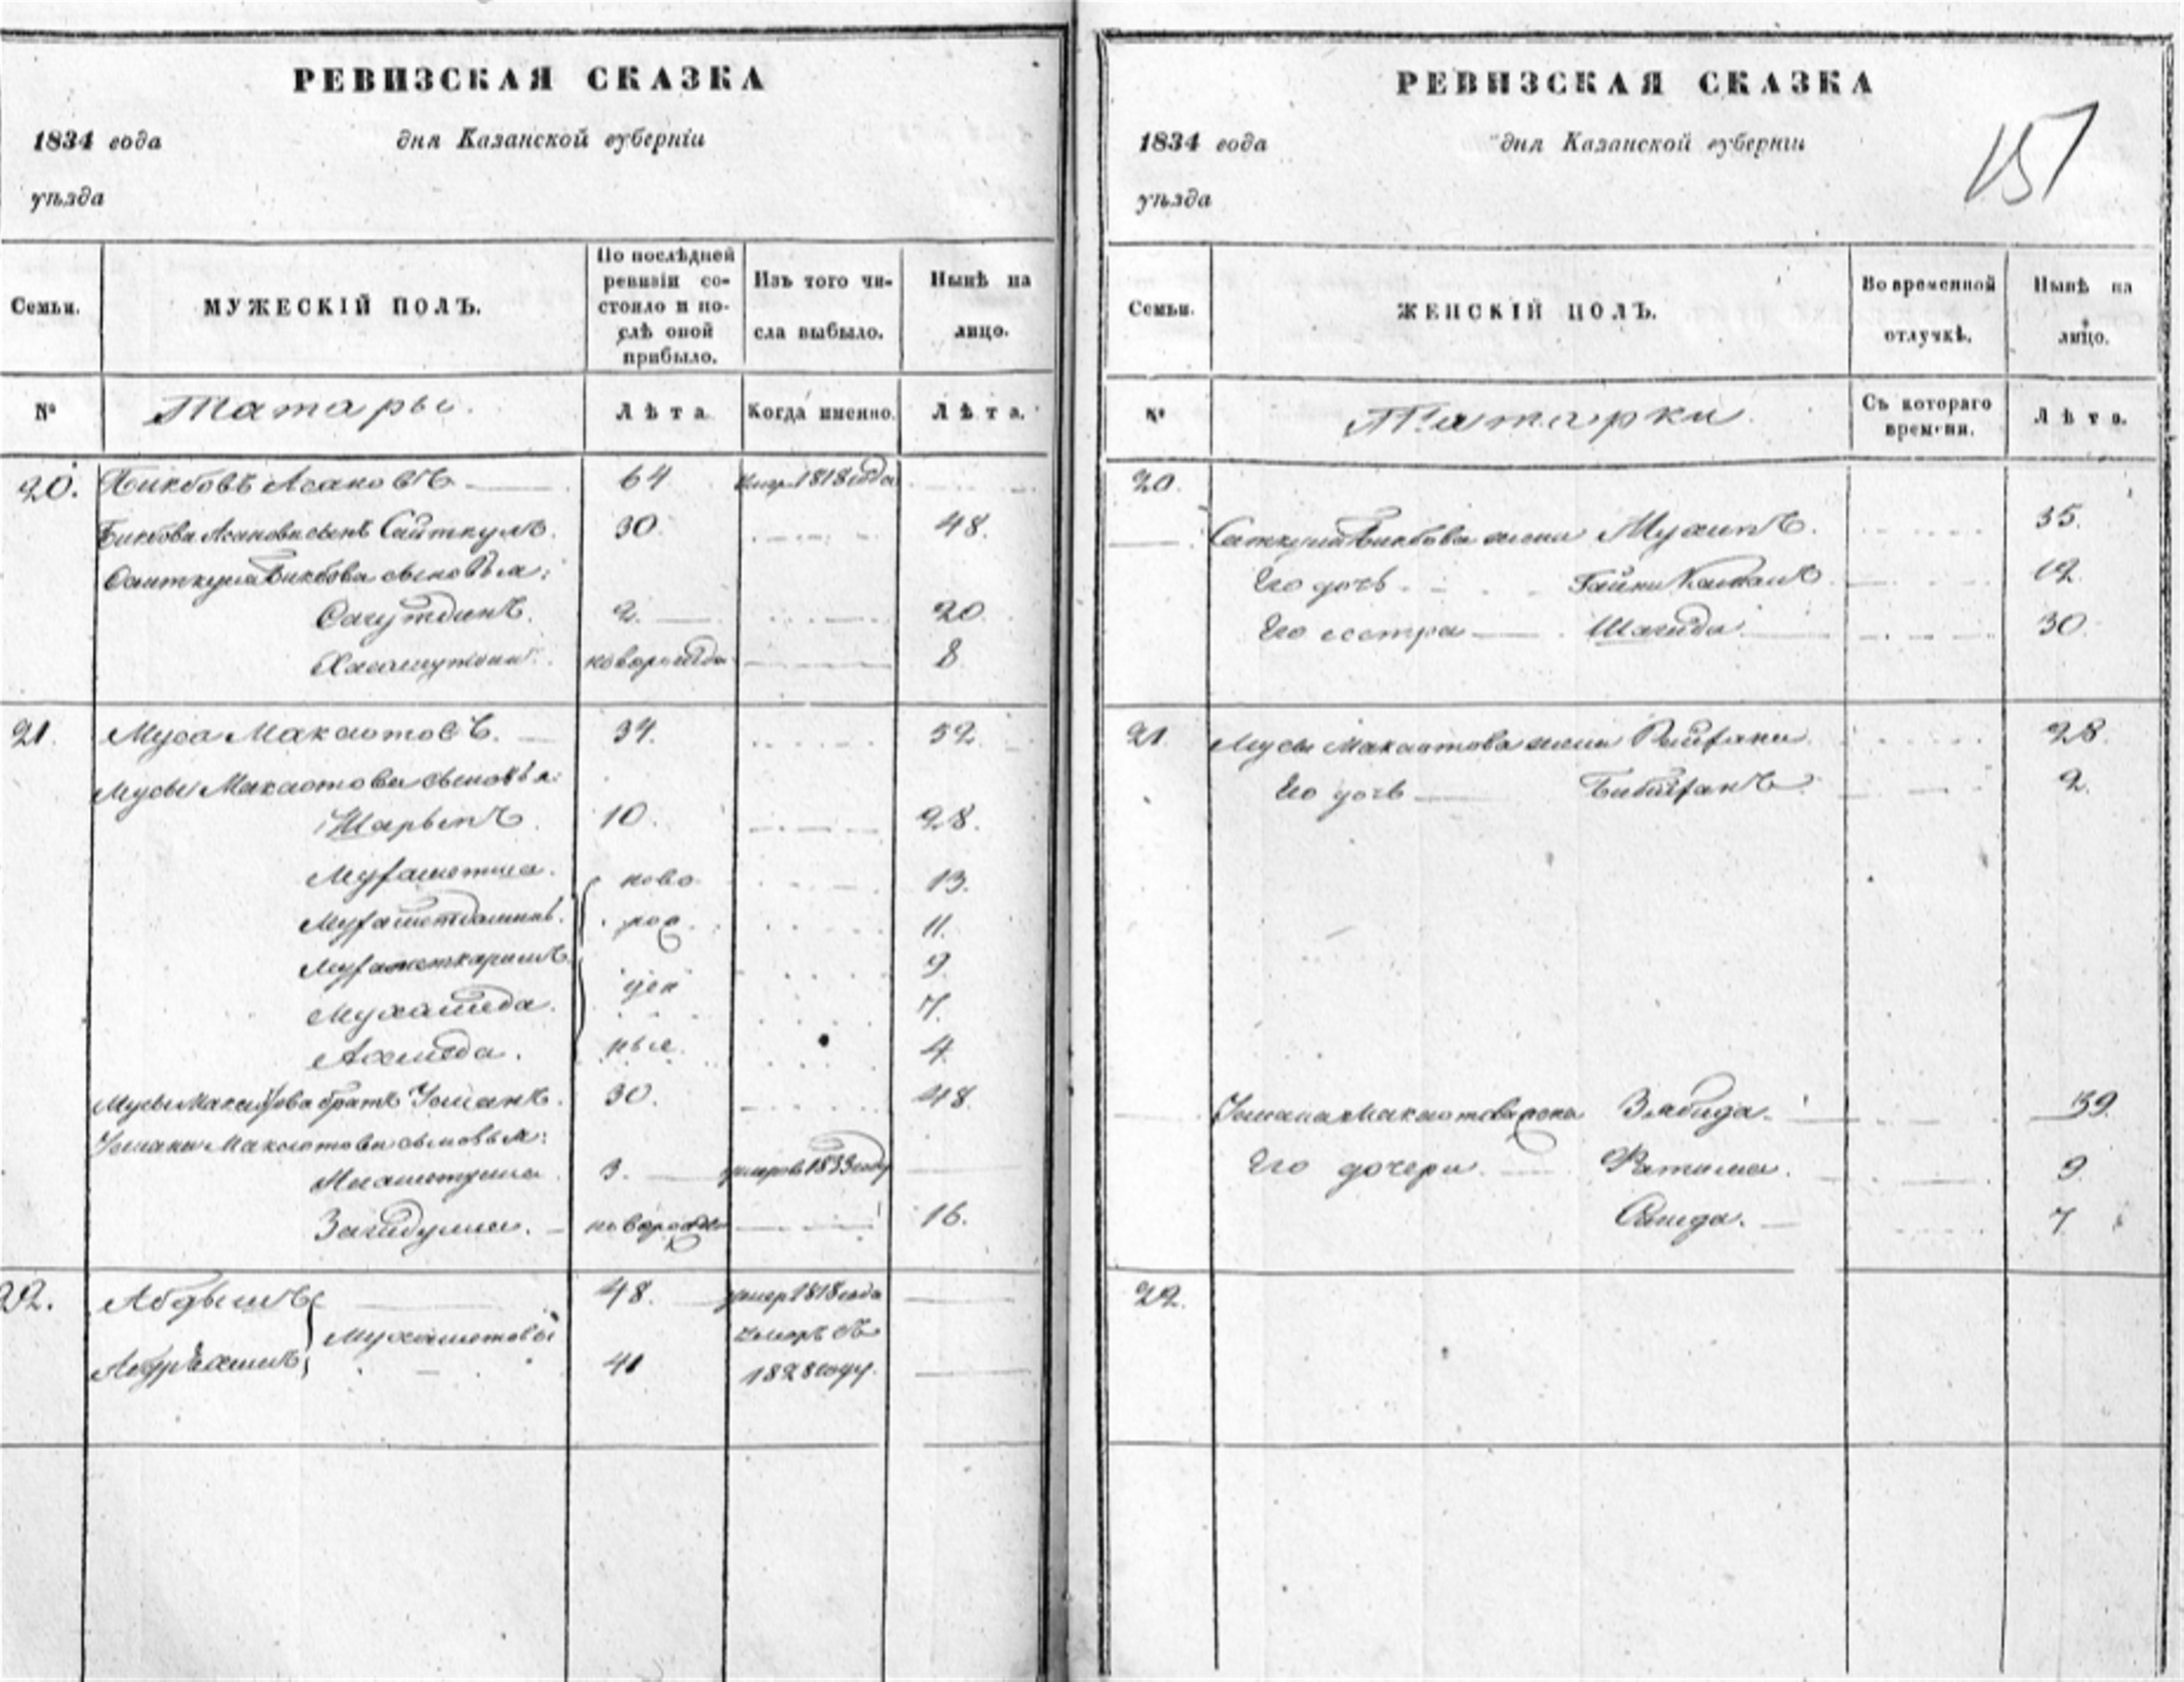 РЕВИЗСКАЯ СКАЗКА
1834 года дня Казанской губерніи
уѣзда
Семьи.
МУЖЕСКІЙ ПОЛЪ.
По послѣдней ревизіи состояло и послѣ оной прибыло.
Изъ того числа выбыло.
Нынѣ на лицо.
№
Татары.
Лѣта
Когда именно.
Лѣта.
20. Бикбовъ Асановъ 64 умер. 1818 года
Бикбова Асанова сынъ Сайткулъ. 30. 48.
Саиткула Бикбова сыновья:
Сагутдинъ. 2. 20.
8
21. Муса Максютовъ. 34. 52.
Мусы Максютова сыновья:
Шарыпъ. 10. 28.
ново 13.
рож 11.
9.
Мухамеда. ден 7.
Ахмеда. ные. 4.
Мусы Максютова братъ Усманъ. 30. 48.
Усмана Максютова сыновья:
3. умеръ въ 1833 году
Загидулла. новорожден 16.
22. 48. умер. 1818 года
Мухаметовы умеръ въ
41 1828 году.
РЕВИЗСКАЯ СКАЗКА
1834 года дня Казанской губерніи
уѣзда
151
Семьи.
ЖЕНСКІЙ ПОЛЪ.
Во временной отлучкѣ.
Нынѣ на лицо.
№
Татарки.
Съ котораго времени.
Лѣта.
20.
Саткула Бикбова жена 35.
Его дочь 12.
Его сестра Шагида 30.
21. Мусы Максютова жена 28.
Его дочь 2.
Усмана Максютова жена Зябида. 39.
Его дочери Фатима. 9.
Саида. 7
22.